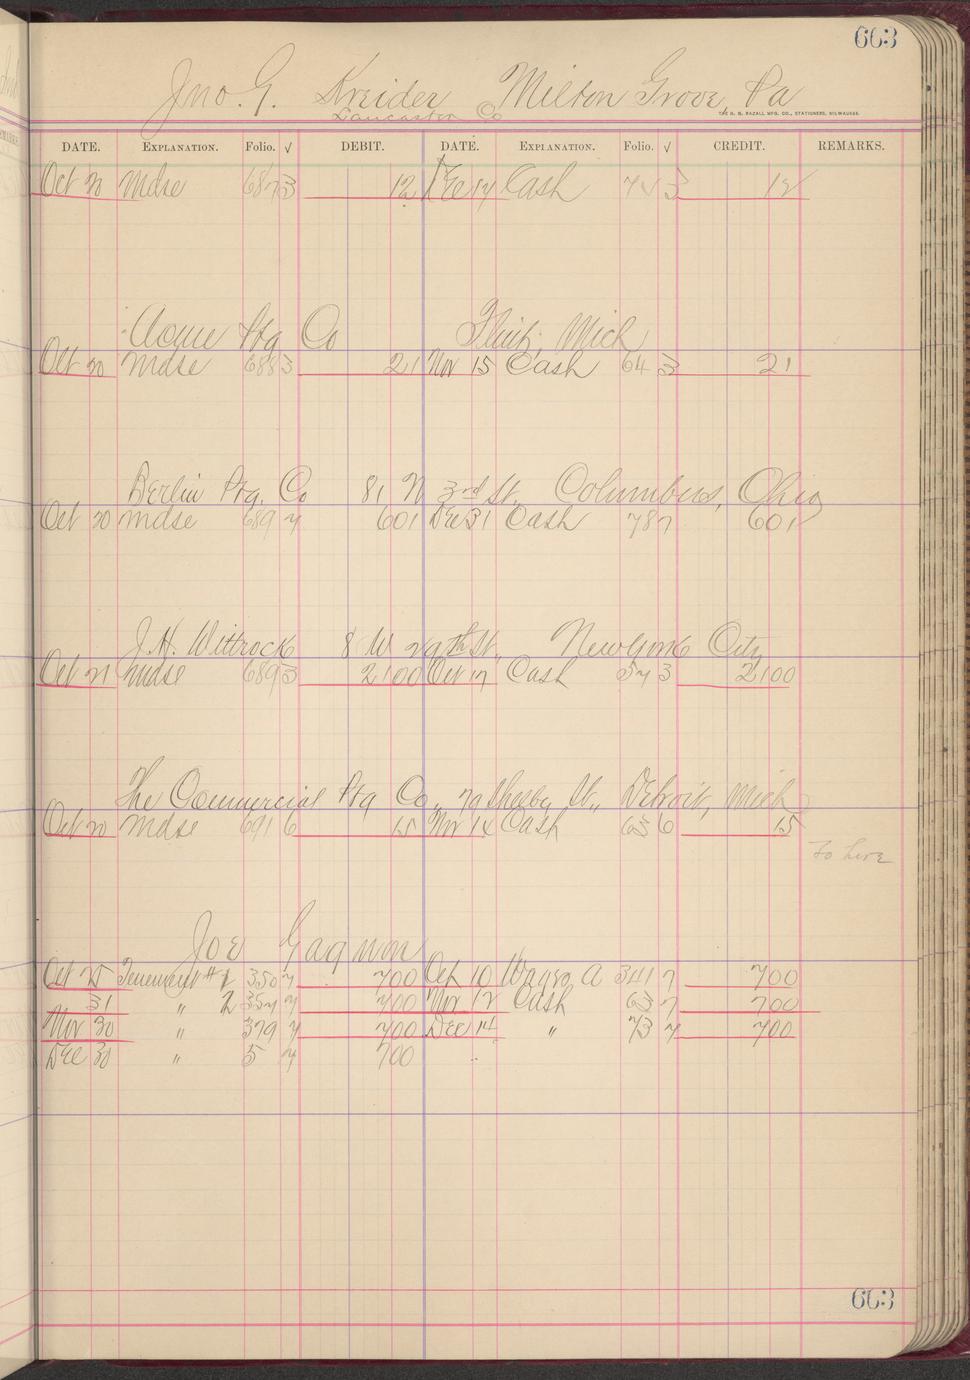 663
Jno. G. Kreider Milton Grove, Pa
Lancaster Co
THE H. G. RAZALL MFG. CO., STATIONERS, MILWAUKEE.
DATE. EXPLANATION. Folio. √ DEBIT. DATE. EXPLANATION. Folio. √ CREDIT. REMARKS.
Oct 20 Mdse 687 3 12 Dec 14 Cash 74 3 12
Acme Ptg Co Flint, Mich
Oct 20 Mdse 688 3 21 Nov 15 Cash 64 3 21
Berlin Ptg. Co 81 N 3rd St. Columbus, Ohio
Oct 20 Mdse 689 7 601 Dec 31 Cash 78 7 601
J. H. Wittrock 8 W 29th St., New York City
Oct 21 Mdse 689 3 2100 Oct 17 Cash 57 3 2100
The Commercial Ptg Co., 79 Shelby St., Detroit, Mich
Oct 20 Mdse 691 6 15 Nov 14 Cash 63 6 15
To here
Joe Gagnon
Oct 25 Tenement #2 350 7 700 Oct 10 Wages A 341 7 700
31 " 2 354 7 700 Nov 12 Cash 63 7 700
Nov 30 " 379 7 700 Dec 14 " 73 7 700
Dec 30 " 5 7 700
663